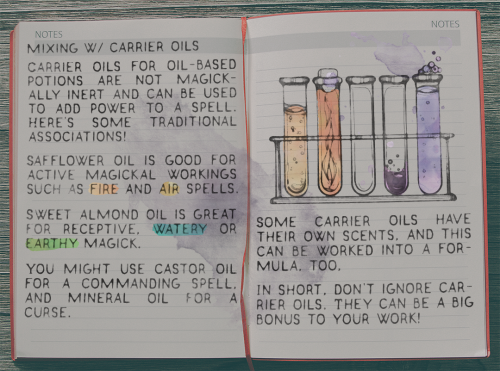 NOTES
MIXING W/ CARRIER OILS
CARRIER OILS FOR OIL-BASED
POTIONS ARE NOT MAGICK-
ALLY INERT AND CAN BE USED
TO ADD POWER TO A SPELL.
HERE'S SOME TRADITIONAL
ASSOCIATIONS!
SAFFLOWER OIL IS GOOD FOR
ACTIVE MAGICKAL WORKINGS
SUCH AS FIRE AND AIR SPELLS.
SWEET ALMOND OIL IS GREAT
FOR RECEPTIVE, WATERY OR
EARTHY MAGICK.
YOU MIGHT USE CASTOR OIL
FOR A COMMANDING SPELL,
AND MINERAL OIL FOR A
CURSE.
NOTES
SOME CARRIER OILS HAVE
THEIR OWN SCENTS, AND THIS
CAN BE WORKED INTO A FOR-
MULA, TOO.
IN SHORT, DON'T IGNORE CAR-
RIER OILS. THEY CAN BE A BIG
BONUS TO YOUR WORK!